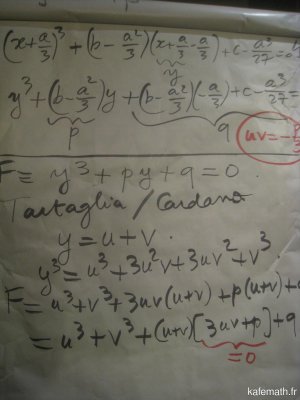 (x+a/3)³ + (b-a²/3)(x+a/3-a/3) + c-a³/27 =0
y
y³+(b-a²/3)y+(b-a²/3)(-a/3)+c-a³/27=
p
q
uv=-p/3
F= y³+py+q=0.
Tartaglia/Cardano
y=u+v.
y³=u³+3u²v+3uv²+v³
F=u³+v³+3uv(u+v)+p(u+v)+
=u³+v³+(u+v)[3uv+p]+q
=0
kafemath.fr